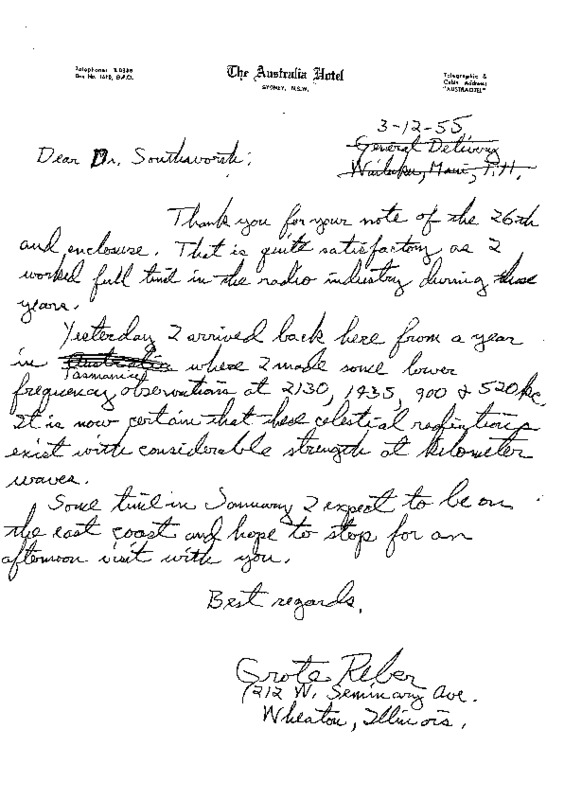 Telephone: B 0388
Box No. 1618, G.P.O.
The Australia Hotel
SYDNEY, N.S.W.
Telegraphic &
Cable Address
"AUSTRAOTEL"
3-12-55
General Delivery
Wailuku, Maui, T.H.
Dear Dr. Southworth;
Thank you for your note of the 26th
and enclosure. That is quite satisfactory as I
worked full time in the radio industry during those
years.
Yesterday I arrived back here from a year
in Australia where I made some lower
Tasmania
frequency observations at 2130, 1435, 900 & 520 kc.
It is now certain that these celestial radiations
exist with considerable strength at kilometer
waves.
Some time in January I expect to be on
the east coast and hope to stop for an
afternoon visit with you.
Best regards,
Grote Reber
1212 W. Seminary Ave.
Wheaton, Illinois.